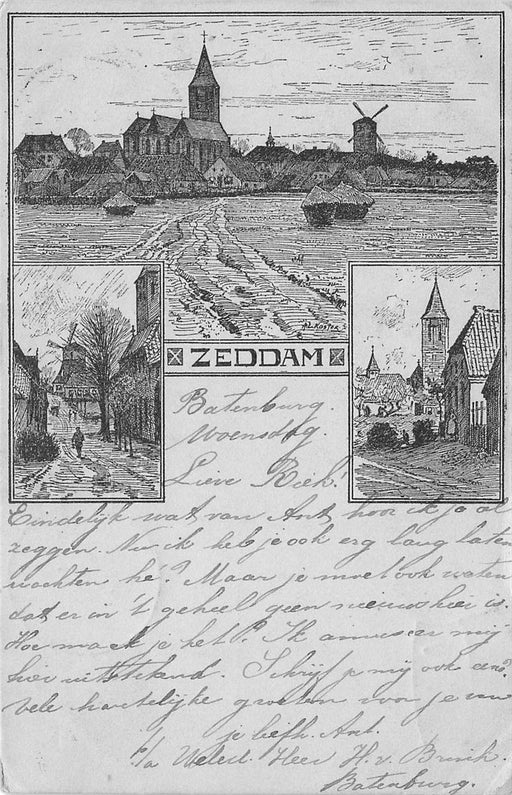 A. L. KOSTER
ZEDDAM
Batenburg.
Woensdag.
Lieve Riek!
Eindelijk wat van Ant, hoor ik je al
zeggen. Nu ik heb je ook erg lang laten
wachten hé? Maar je moet ook weten
dat er in 't geheel geen nieuws hier is.
Hoe maak je het? Ik amuseer mij
hier uitstekend. Schrijf mij ook eens?
Vele hartelijke groeten voor je van
je liefh. Ant.
p/a Weled. Heer H. v.
Batenburg.